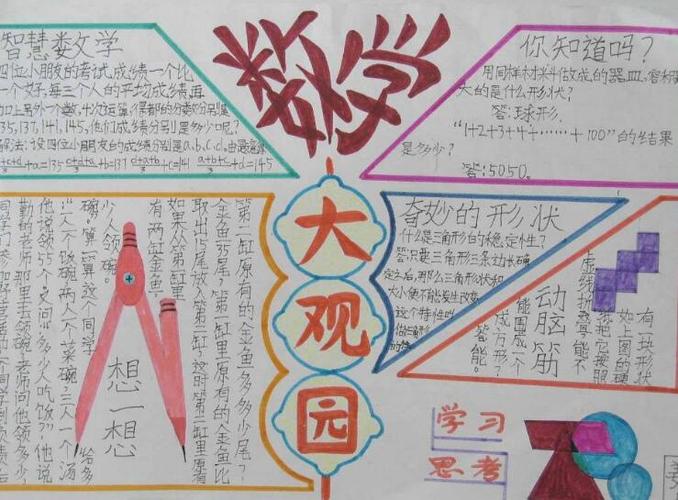 数学
大
观
园
智慧数学
四位小朋友的考试成绩一个比
一个好,每三个人的平均成绩再
加上另外一个数,4次运算,得都的分数分别是
135,137,141,145,他们成绩分别是多少呢?
解法:设四位小朋友的成绩分别是a.b.c.d,由题意得
你知道吗?
用同样材料做成的器皿,容积最
大的是什么形状?
答:球形.
“1+2+3+4+……+100”的结果
是多少?
答:5050.
奇妙的形状
什么是三角形的稳定性?
答:只要三角形三条边长确
定之后,那么三角形状和
大小便不能发生改变
这个特性叫
做三角形
动脑筋
有一块形状
如上图的硬
纸,把它按照
虚线折叠,能不
能围成一个
正方形?
答:能。
第二缸原有的金鱼多多少尾?
金鱼35尾?第一缸里原有的金鱼比
取出15尾放入第二缸,这时第二缸里原有
如果从第一缸里
有两缸金鱼,
想一想
给多
少人领碗。
碗,算一算这个同学
“一人一个饭碗,两人一个菜碗,三人一个汤
他说领55个,又问“多少人吃饭”他说
勤的老师那里去领碗,老师问他领多少,
学习
思考